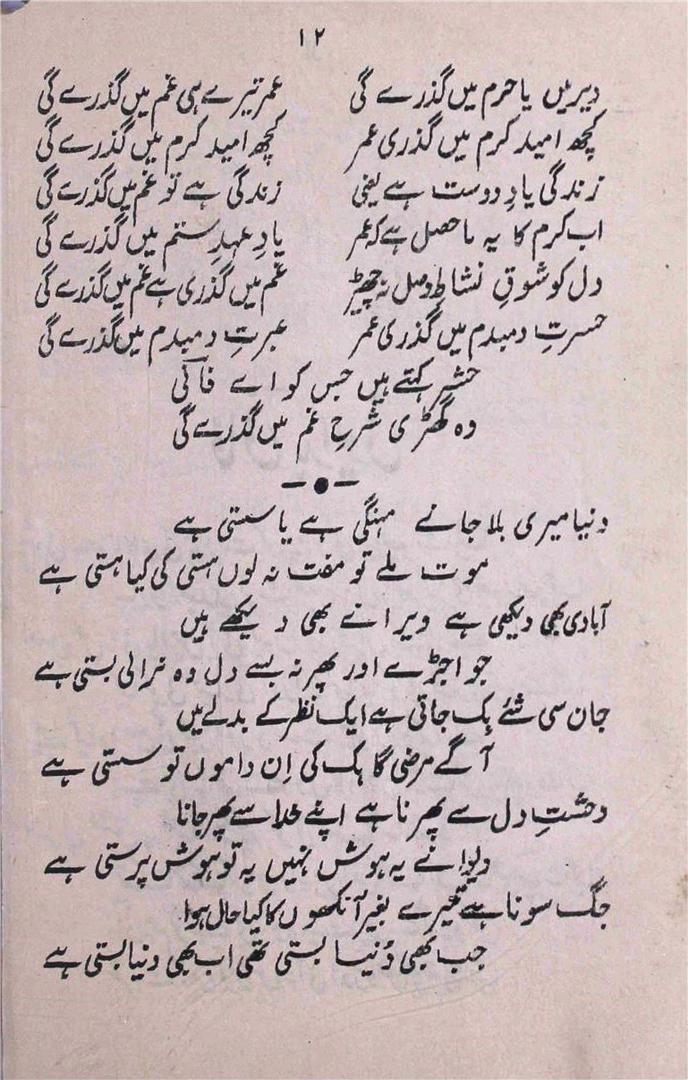 ۱۲
دیر میں یا حرم میں گذرے گی عمر تیرے ہی غم میں گذرے گی
کچھ امید کرم میں گذری عمر کچھ امید کرم میں گذرے گی
زندگی یادِ دوست ہے یعنی زندگی ہے تو غم میں گذرے گی
اب کرم کا یہ ماحصل ہے کہ عمر یادِ عہدِ ستم میں گذرے گی
دل کو شوقِ نشاطِ وصل نہ چھیڑ غم میں گذری ہے غم میں گذرے گی
حسرتِ دمبدم میں گذری عمر عبرتِ دمبدم میں گذرے گی
حشر کہتے ہیں جس کو اے فانیؔ
وہ گھڑی شرحِ غم میں گذرے گی
دنیا میری بلا جانے مہنگی ہے یا سستی ہے
موت ملے تو مفت نہ لوں ہستی کی کیا ہستی ہے
آبادی بھی دیکھی ہے ویرانے بھی دیکھے ہیں
جو اجڑے اور پھر نہ بسے دل وہ نرالی بستی ہے
جان سی شئے بِک جاتی ہے ایک نظر کے بدلے میں
آگے مرضی گاہک کی اِن داموں تو سستی ہے
وحشتِ دل سے پھرنا ہے اپنے خدا سے پھر جانا
دیوانے یہ ہوش نہیں یہ تو ہوش پرستی ہے
جگ سونا ہے تیرے بغیر آنکھوں کا کیا حال ہوا
جب بھی دُنیا بستی تھی اب بھی دنیا بستی ہے